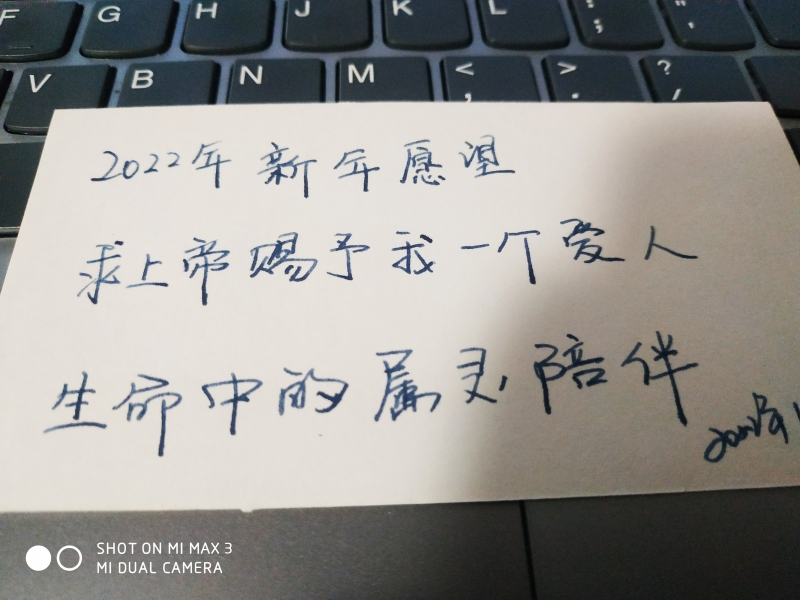 F G H J K L : ; " '
V B N M < , > . ? /
2022年 新年愿望
求上帝赐予我一个爱人
生命中的属灵陪伴
SHOT ON MI MAX 3
MI DUAL CAMERA